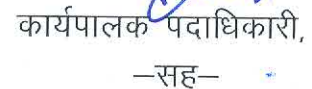 कार्यपालक पदाधिकारी,
–सह–